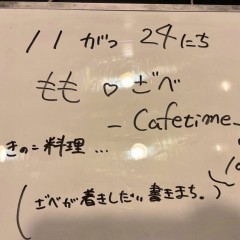 11がつ 24にち
もも♡ざべ
- Cafetime -
きのこ料理...
(ざべが着きしだい書きまち。)